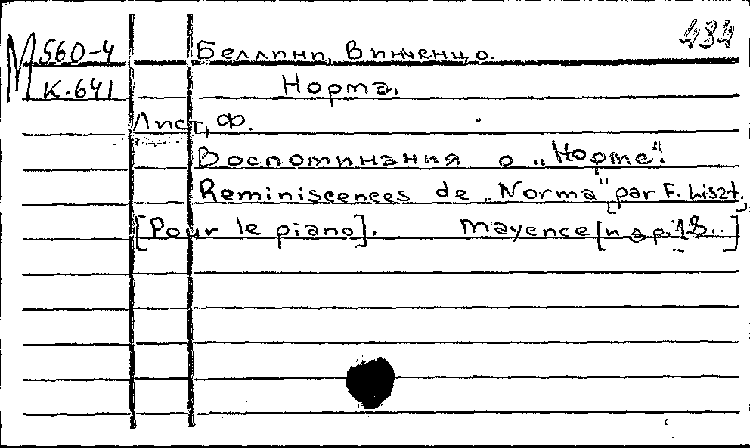 484
М 560-4 Беллини, Винченцо.
К.641 Норма.
Лист, Ф.
Воспоминания о „Норме".
Reminiscences de „Norma" par F. Liszt.
[Pour le piano]. Mayence [18..]